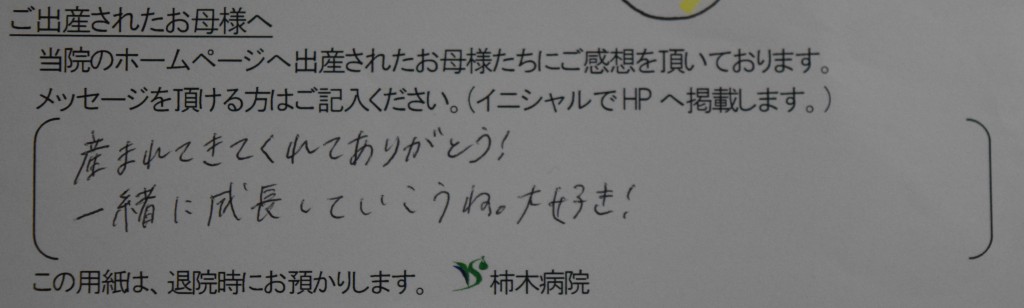 ご出産されたお母様へ
当院のホームページへ出産されたお母様たちにご感想を頂いております。
メッセージを頂ける方はご記入ください。(イニシャルでHPへ掲載します。)
産まれてきてくれてありがとう!
一緒に成長していこうね。大好き!
この用紙は、退院時にお預かりします。 柿木病院